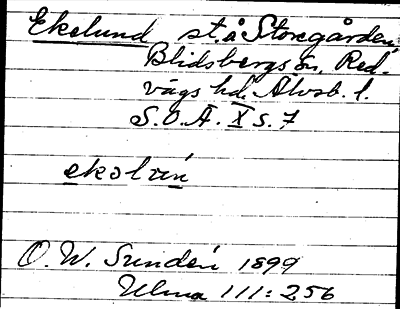 Ekelund st. å Storegården,
Blidsbergs sn, Red-
vägs hd. Älvsb. l.
S.O.Ä. X s. 7
O. W. Sundén 1899
Ulma 111:256